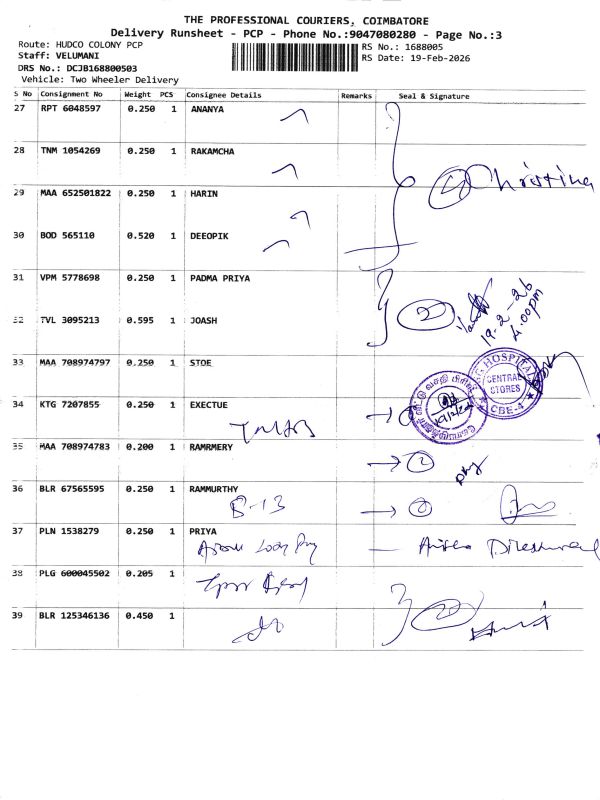 THE PROFESSIONAL COURIERS, COIMBATORE
Delivery Runsheet - PCP - Phone No.:9047080280 - Page No.:3
Route: HUDCO COLONY PCP
Staff: VELUMANI
DRS No.: DCJB168800503
Vehicle: Two Wheeler Delivery
RS No.: 1688005
RS Date: 19-Feb-2026
S No Consignment No Weight PCS Consignee Details Remarks Seal & Signature
27 RPT 6048597 0.250 1 ANANYA
28 TNM 1054269 0.250 1 RAKAMCHA
4 Christina
29 MAA 652501822 0.250 1 HARIN
30 BOD 565110 0.520 1 DEEOPIK
31 VPM 5778698 0.250 1 PADMA PRIYA
2
19-2-26
4.00pm
32 TVL 3095213 0.595 1 JOASH
33 MAA 708974797 0.250 1 STOE
HOSPITAL
CENTRAL
STORES
CBE-4
34 KTG 7207855 0.250 1 EXECTUE
35 MAA 708974783 0.200 1 RAMRMERY
2
36 BLR 67565595 0.250 1 RAMMURTHY
B-13
37 PLN 1538279 0.250 1 PRIYA
38 PLG 600045502 0.205 1
39 BLR 125346136 0.450 1
2